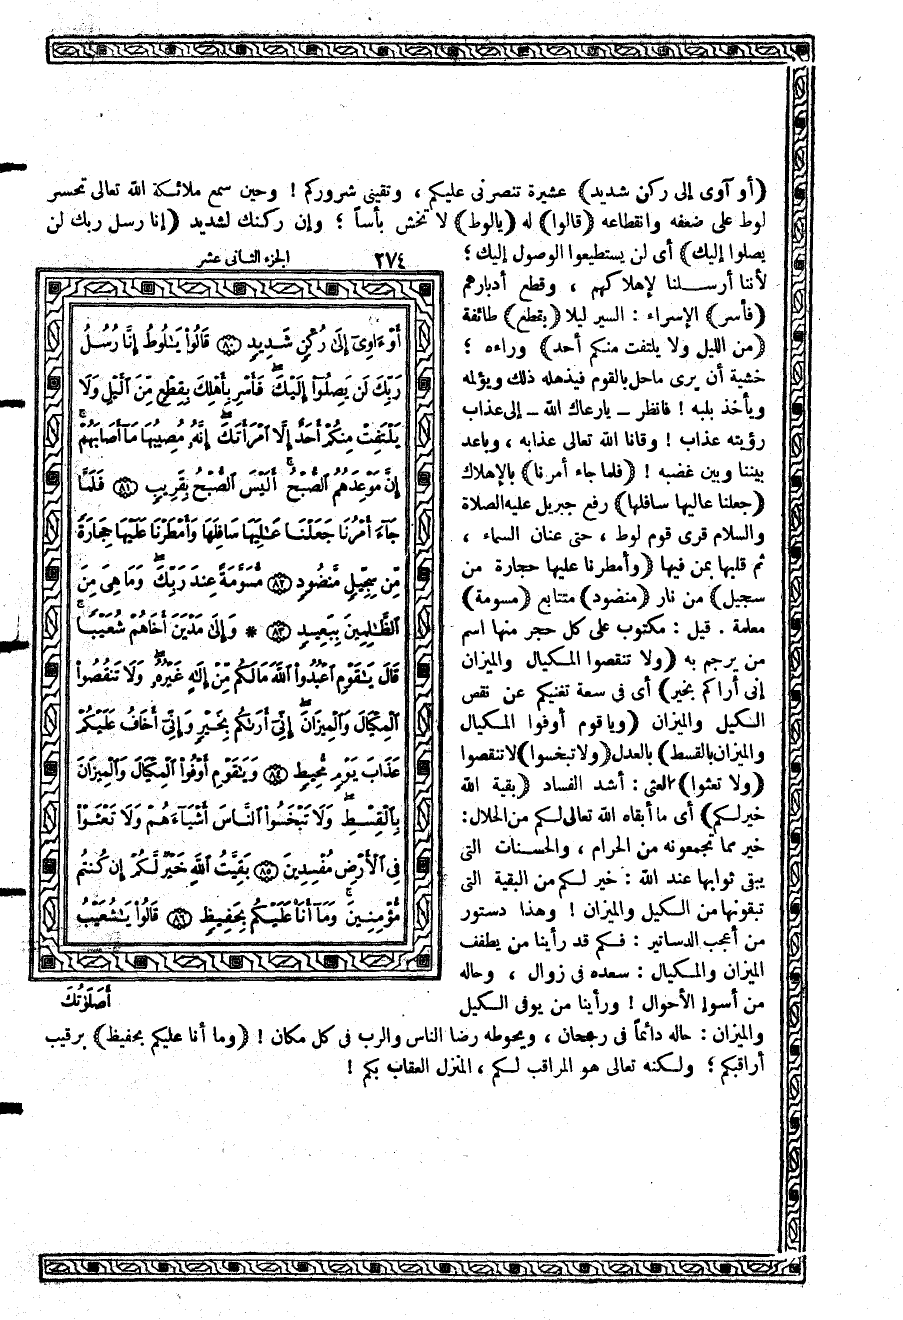 (أو آوى إلى ركن شديد) عشيرة تنصرنى عليكم ، وتقينى شروركم ! وحين سمع ملائكة الله تعالى تحسر
لوط على ضعفه وانقطاعه (قالوا) له (يالوط) لا تخش بأساً ؛ وإن ركنك لشديد (إنا رسل ربك لن
يصلوا إليك) أى لن يستطيعوا الوصول إليك ؛
لأننا أرسلنا لإهلاكهم ، وقطع أدبارهم
(فأسر) الإسراء : السير ليلا (بقطع) طائفة
(من الليل ولا يلتفت منكم أحد) وراءه ؛
خشية أن يرى ماحل بالقوم فيذهله ذلك ويؤلمه
ويأخذ بلبه ! فانظر ــ يارعاك الله ــ إلى عذاب
رؤيته عذاب ! وقانا الله تعالى عذابه ، وباعد
بيننا وبين غضبه ! (فلما جاء أمرنا) بالإهلاك
(جعلنا عاليها سافلها) رفع جبريل عليه الصلاة
والسلام قرى قوم لوط ، حتى عنان السماء ،
ثم قلبها بمن فيها (وأمطرنا عليها حجارة من
سجيل) من نار (منضود) متتابع (مسومة)
معلمة . قيل : مكتوب على كل حجر منها اسم
من يرجم به (ولا تنقصوا المكيال والميزان
إنى أراكم بخير) أى فى سعة تغنيكم عن نقص
الكيل والميزان (وياقوم أوفوا المكيال
والميزان بالقسط) بالعدل (ولا تبخسوا) لاتنقصوا
(ولا تعثوا) العثى : أشد الفساد (بقية الله
خير لكم) أى ما أبقاه الله تعالى لكم من الحلال :
خير مما تجمعونه من الحرام ، والحسنات التى
يبقى ثوابها عند الله : خير لكم من البقية التى
تبقونها من الكيل والميزان ! وهذا دستور
من أعجب الدساتير : فكم قد رأينا من يطفف
الميزان والمكيال : سعده فى زوال ، وحاله
من أسوإ الأحوال ! ورأينا من يوفى الكيل
والميزان : حاله دائماً فى رجحان ، ويحوطه رضا الناس والرب فى كل مكان ! (وما أنا عليكم بحفيظ) برقيب
أراقبكم ؛ ولكنه تعالى هو المراقب لكم ، المنزل العقاب بكم !
٢٧٤ الجزء الثانى عشر
أَوْ ءَاوِىٓ إِلَىٰ رُكْنٍ شَدِيدٍ ٨٠ قَالُوا۟ يَـٰلُوطُ إِنَّا رُسُلُ
رَبِّكَ لَن يَصِلُوٓا۟ إِلَيْكَ ۖ فَأَسْرِ بِأَهْلِكَ بِقِطْعٍ مِّنَ ٱلَّيْلِ وَلَا
يَلْتَفِتْ مِنكُمْ أَحَدٌ إِلَّا ٱمْرَأَتَكَ ۖ إِنَّهُۥ مُصِيبُهَا مَآ أَصَابَهُمْ ۚ
إِنَّ مَوْعِدَهُمُ ٱلصُّبْحُ ۚ أَلَيْسَ ٱلصُّبْحُ بِقَرِيبٍ ٨١ فَلَمَّا
جَآءَ أَمْرُنَا جَعَلْنَا عَـٰلِيَهَا سَافِلَهَا وَأَمْطَرْنَا عَلَيْهَا حِجَارَةً
مِّن سِجِّيلٍ مَّنضُودٍ ٨٢ مُّسَوَّمَةً عِندَ رَبِّكَ ۖ وَمَا هِىَ مِنَ
ٱلظَّـٰلِمِينَ بِبَعِيدٍ ٨٣ * وَإِلَىٰ مَدْيَنَ أَخَاهُمْ شُعَيْبًا ۚ
قَالَ يَـٰقَوْمِ ٱعْبُدُوا۟ ٱللَّهَ مَا لَكُم مِّنْ إِلَـٰهٍ غَيْرُهُۥ ۖ وَلَا تَنقُصُوا۟
ٱلْمِكْيَالَ وَٱلْمِيزَانَ ۚ إِنِّىٓ أَرَىٰكُم بِخَيْرٍ وَإِنِّىٓ أَخَافُ عَلَيْكُمْ
عَذَابَ يَوْمٍ مُّحِيطٍ ٨٤ وَيَـٰقَوْمِ أَوْفُوا۟ ٱلْمِكْيَالَ وَٱلْمِيزَانَ
بِٱلْقِسْطِ ۖ وَلَا تَبْخَسُوا۟ ٱلنَّاسَ أَشْيَآءَهُمْ وَلَا تَعْثَوْا۟
فِى ٱلْأَرْضِ مُفْسِدِينَ ٨٥ بَقِيَّتُ ٱللَّهِ خَيْرٌ لَّكُمْ إِن كُنتُم
مُّؤْمِنِينَ ۚ وَمَآ أَنَا۠ عَلَيْكُم بِحَفِيظٍ ٨٦ قَالُوا۟ يَـٰشُعَيْبُ
أَصَلَوٰتُكَ